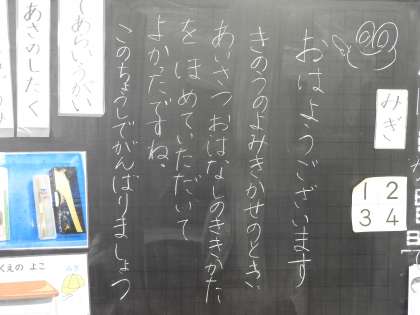 みぎ
1 2
3 4
おはようございます
きのうのよみきかせのときに
あいさつおはなしのききかた
をほめていただいて
よかったですね。
このちょうしでがんばりましょう
てあらいうがい
あさのしたく
くえの よこ